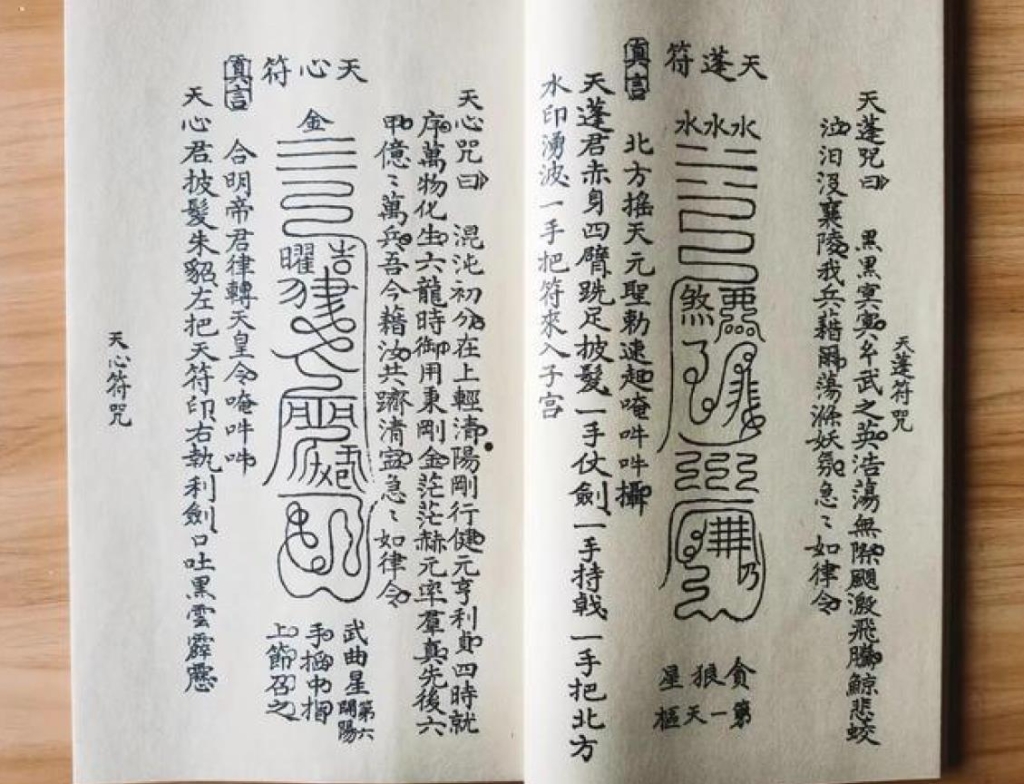 天蓬符咒
天蓬咒曰　黑黑冥冥 武之英浩蕩無際颶激飛騰鯨悲蛟
泣汨沒襄陵我兵藉爾蕩滌妖氛急〻如律令
天蓬符
水水水
惡煞
貪狼星
第一天樞
真言　北方搖天元聖勅速起唵吽吽攝
天蓬君赤身四臂跣足披髮一手仗劍一手持戟一手把北方
水印湧波一手把符來入子宮
天心咒曰　混沌初分在上輕清陽剛行健元亨利貞四時就
序萬物化生六龍時御用東剛金茫茫赫元率羣真先後六
甲億〻萬兵吾今藉汝共躋清寍急〻如律令
天心符
金
吉曜
武曲星第六開陽
手掐中指
上節召之
真言　合明帝君律轉天皇令唵吽吽
天心君披髮朱貂左把天符印右執利劍口吐黑雲霹靂
天心符咒